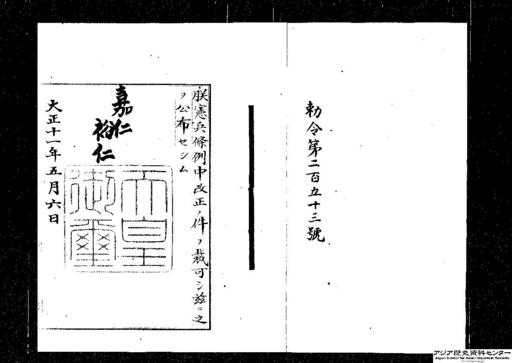 勅令第二百五十三號
朕憲兵條例中改正ノ件ヲ裁可シ茲ニ之
ヲ公布セシム
嘉仁
裕仁
天皇御璽
大正十一年五月六日
アジア歴史資料センター
Japan Center for Asian Historical Records